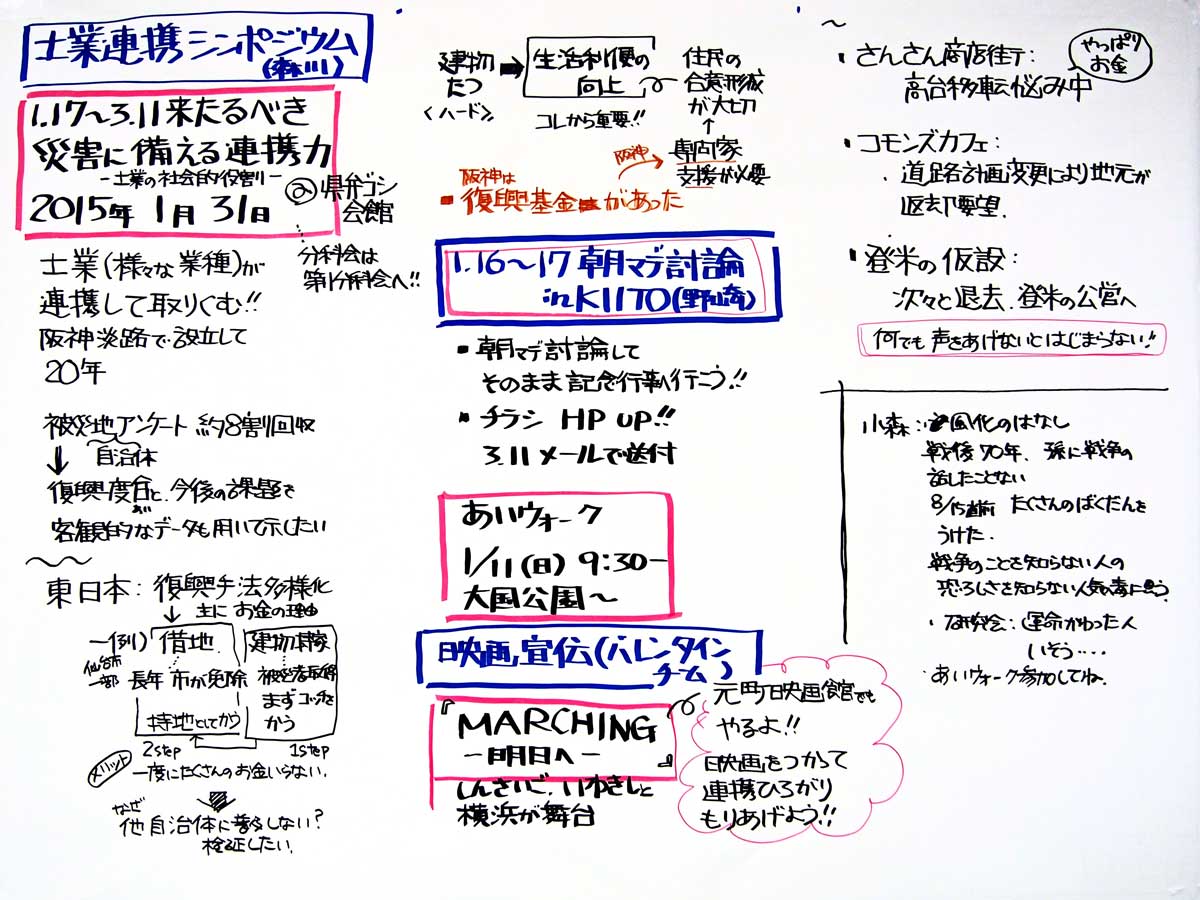 士業連携シンポジウム
(森川)
1.17〜3.11来たるべき
災害に備える連携力
-士業の社会的役割-
2015年 1月 31日
@県弁ゴシ
会館
分科会は
第1分科会へ!!
士業(様々な業種)が
連携して取りくむ!!
阪神淡路で設立して
20年
被災地アンケート 約8割回収
自治体
復興度合と、今後の課題を
客観的なデータも用いて示したい
東日本：復興手法多様化
主に お金の理由
一例)
仙台市
一部
借地
長年 市が免除
持地としてかう
2step
建物
まずコッチを
かう
1step
メリット
一度にたくさんのお金いらない.
なぜ
他自治体に普及しない?
検証したい.
建物
たつ
<ハード>
生活利便の
向上
コレから重要!!
住民の
合意形成
が大切
阪神
専門家
支援が必要
阪神は
復興基金はがあった
1.16〜17 朝マデ討論
in KIITO(野崎)
・朝マデ討論して
そのまま記念行事へ行こう!!
・チラシ HP UP!!
3.11 メールで送付
あいウォーク
1/11(日) 9:30-
大国公園〜
映画宣伝(バレンタイン
チーム)
『MARCHING
-明日へ-』
しんさいご、いわきしと
横浜が舞台
元町映画館でも
やるよ!!
映画をつかって
連携ひろがり
もりあげよう!!
・さんさん商店街：
高台移転悩み中
やっぱり
お金
・コモンズカフェ：
道路計画変更により地元が
返却要望.
・登米の仮設：
次々と退去、登米の公営へ
何でも声をあげないとはじまらない!
小森：風化のはなし
戦後70年、孫に戦争の
話したことない
8/15直前 たくさんのばくだんを
うけた.
戦争のことを知らない人の
恐ろしさを知らない人気の毒に思う.
・研究会：運命かわった人
いそう....
・あいウォーク参加してね.